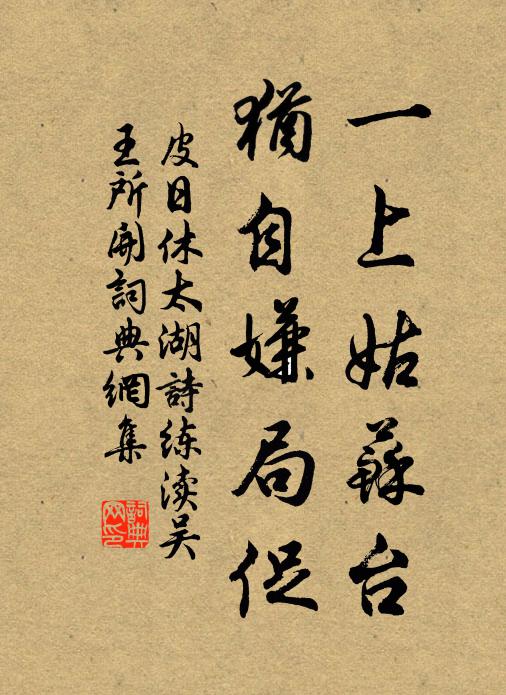 一上姑蘇台
猶自嫌局促
皮日休太湖詩练渎吴
王所開詞典網集
詞典
网印